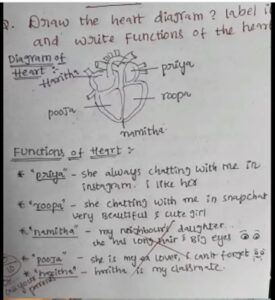 Q. Draw the heart diagram? label i
and write functions of the hear
Diagram of
Heart :-
Haritha
priya
roopa
pooja
namitha
Functions of Heart :-
* "priya" - she always chatting with me in
instagram. i like her
* "roopa" - she chatting with me in snapchat
very beautiful & cute girl
* "namitha" - my neighbour's daughter..
she has long hair & Big eyes
* "pooja" - she is my ex lover, i can't forget
* "haritha" - haritha is my classmate.
10
parents